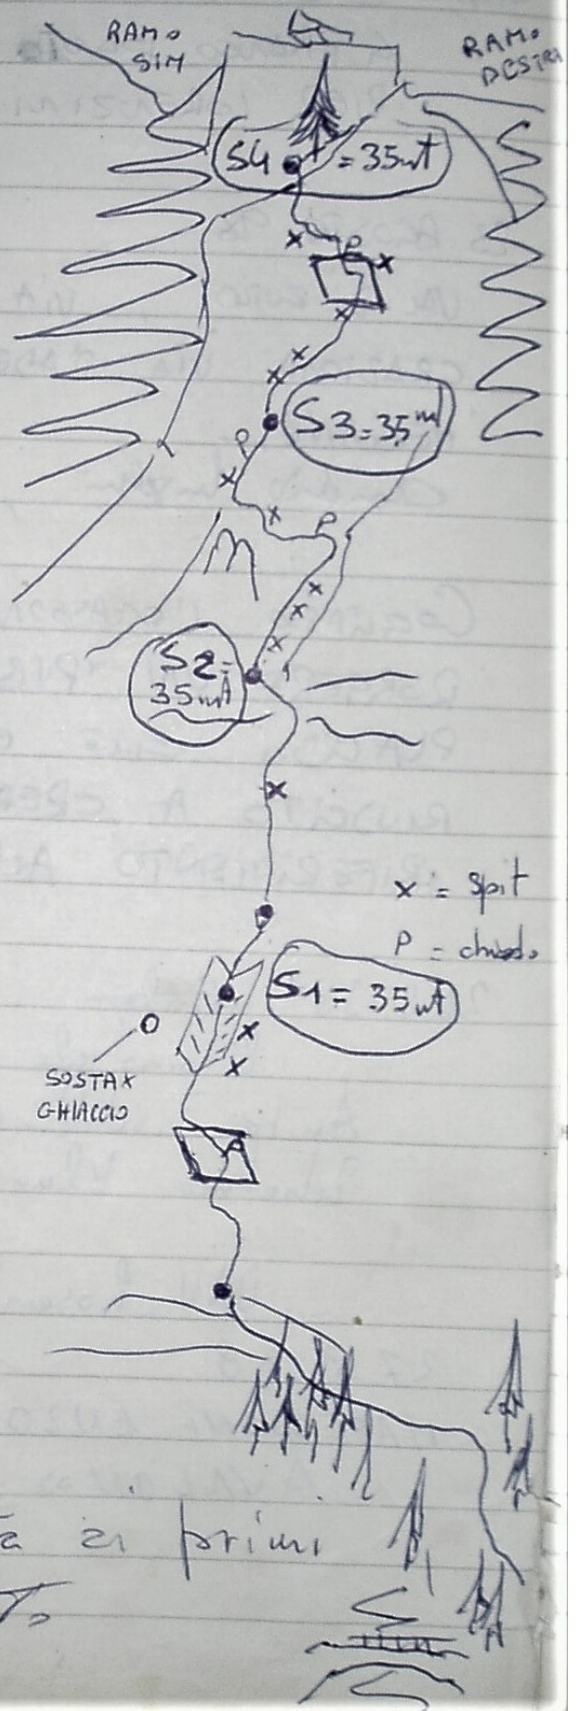 RAMO
SIN
RAMO
DESTRO
S4 = 35mt
P
S3=35mt
P
P
S2=
35mt
x = Spit
P = chiodo
S1= 35mt
SOSTA X
GHIACCIO
ai primi